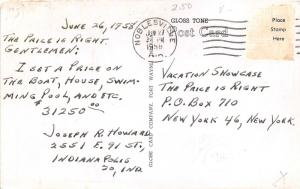 250
June 26, 1958
The Price is Right.
Gentlemen:
I set a price on
the boat, house, swim-
ming pool, and etc.
$31250.00
Joseph R. Howard
2551 E. 91 st.
Indianapolis
20, Ind.
GLOBE CARD COMPANY, FORT WAYNE
NOBLESVILLE
JUN 27
PM
1958
GLOSS TONE
Post Card
Place
Stamp
Here
Vacation Showcase
The Price is Right
P.O. Box 710
New York 46, New York.